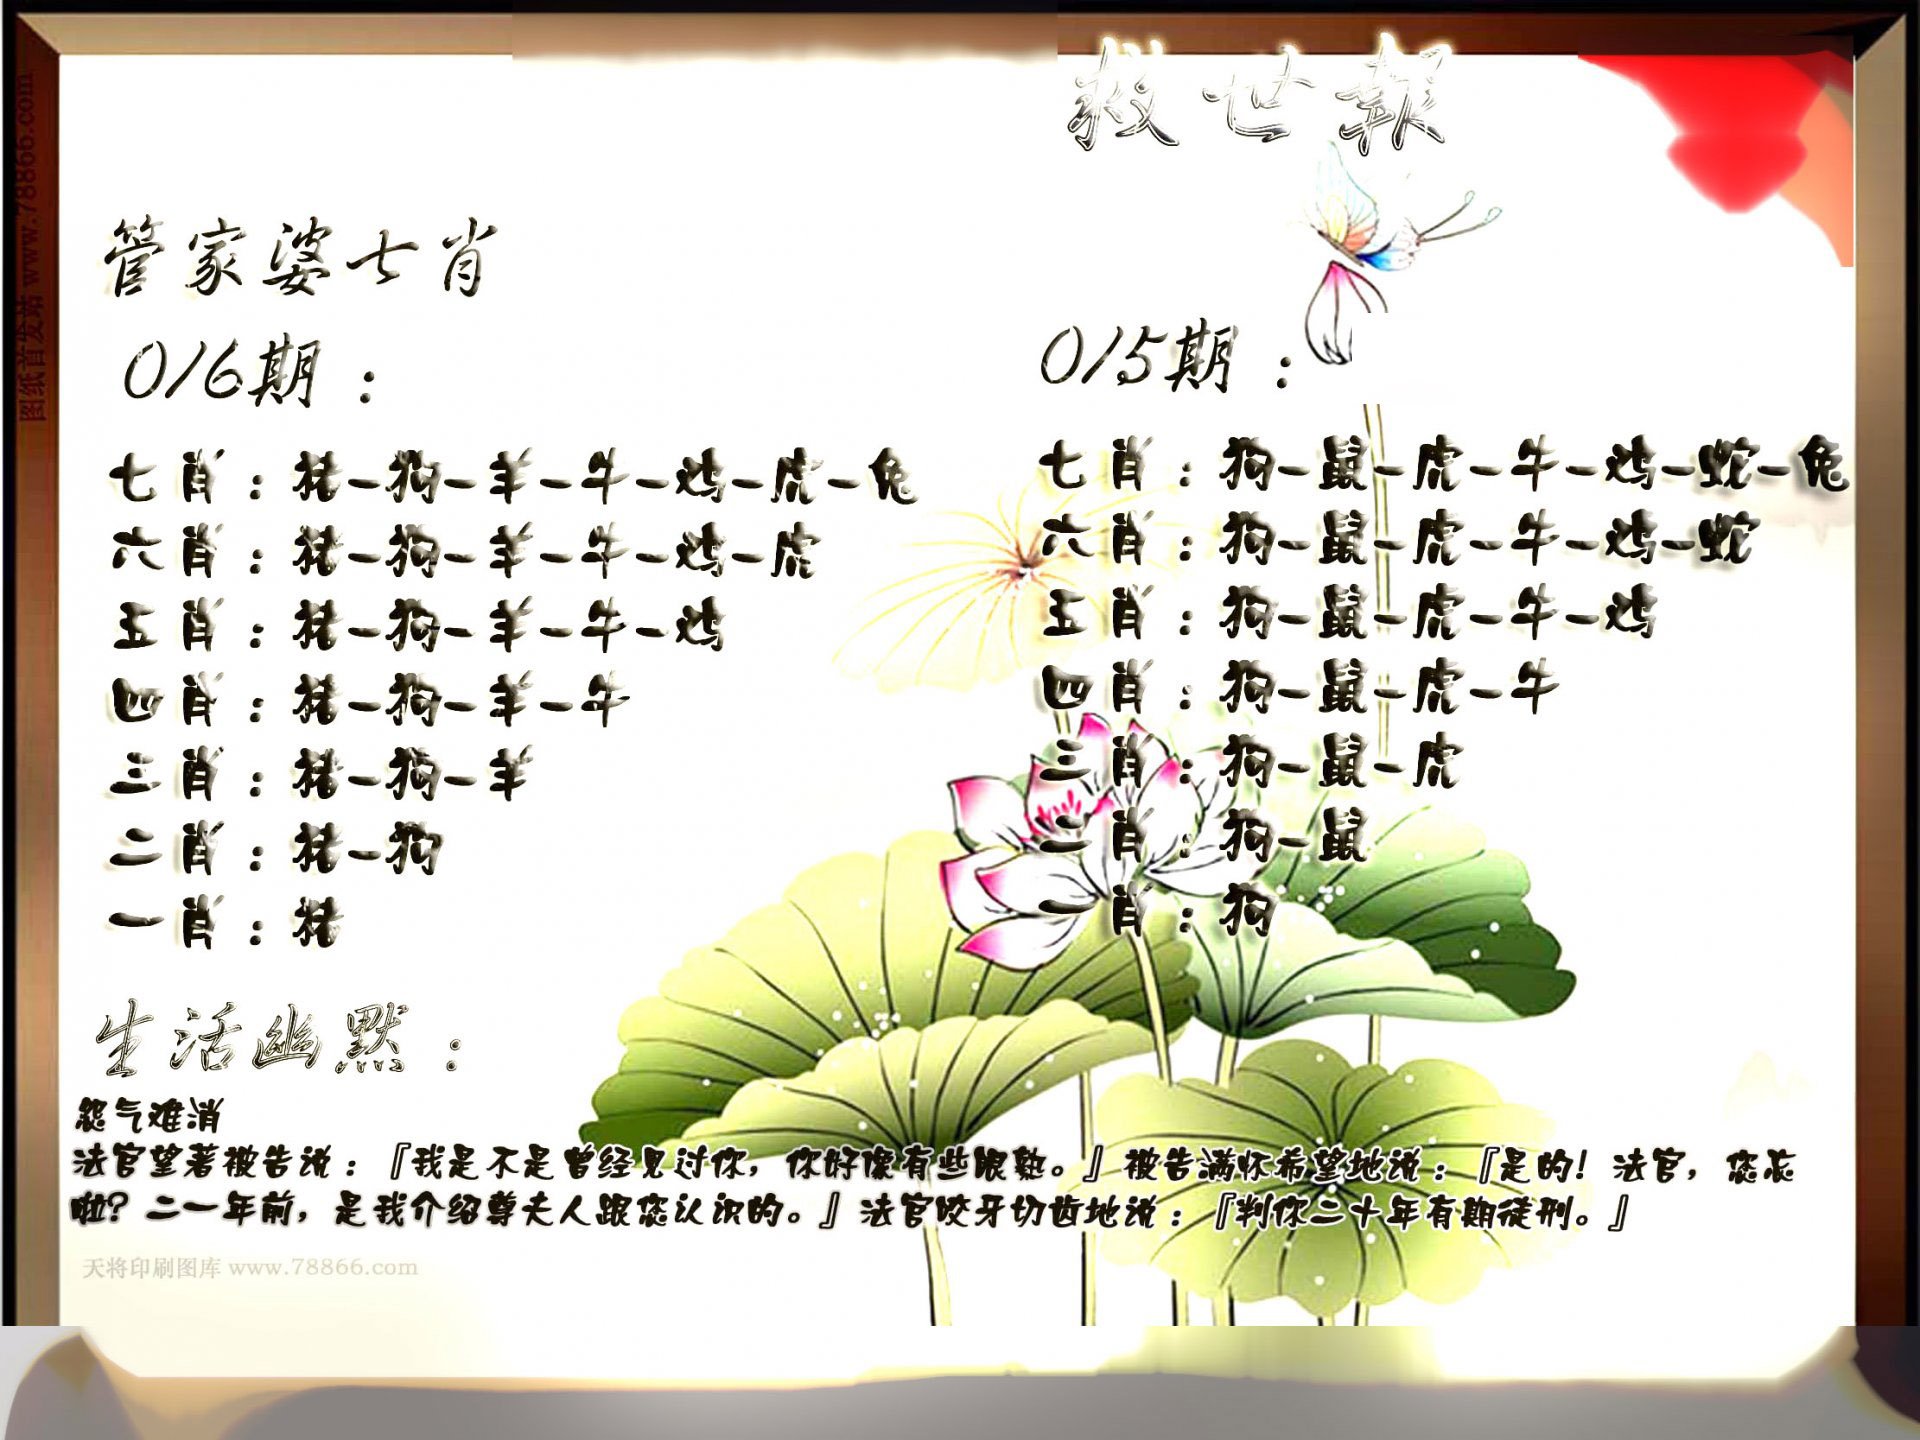 救世報
管家婆七肖
016期：
七肖：猪-狗-羊-牛-鸡-虎-兔
六肖：猪-狗-羊-牛-鸡-虎
五肖：猪-狗-羊-牛-鸡
四肖：猪-狗-羊-牛
三肖：猪-狗-羊
二肖：猪-狗
一肖：猪
015期：
七肖：狗-鼠-虎-牛-鸡-蛇-兔
六肖：狗-鼠-虎-牛-鸡-蛇
五肖：狗-鼠-虎-牛-鸡
四肖：狗-鼠-虎-牛
三肖：狗-鼠-虎
二肖：狗-鼠
一肖：狗
生活幽默：
怨气难消
法官望著被告说：『我是不是曾经见过你，你好像有些眼熟。』被告满怀希望地说：『是的！法官，您忘
啦？二一年前，是我介绍尊夫人跟您认识的。』法官咬牙切齿地说：『判你二十年有期徒刑。』
天将印刷图库 www.78866.com
图纸首发站 www.78866.com